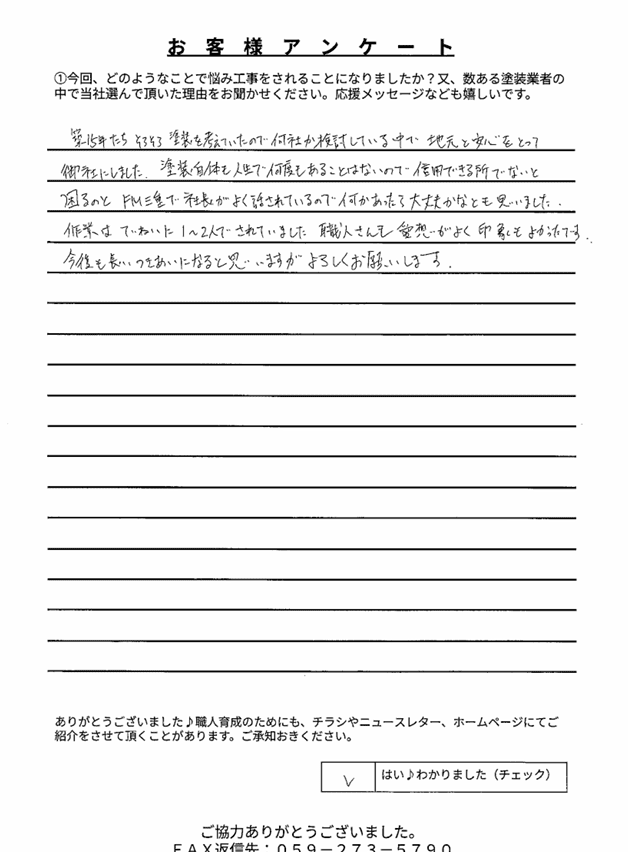 お客様アンケート
①今回、どのようなことで悩み工事をされることになりましたか？又、数ある塗装業者の
中で当社選んで頂いた理由をお聞かせください。応援メッセージなども嬉しいです。
築15年たち そろそろ 塗装を考えていたので何社か検討している中で 地元と安心をとって
御社にしました. 塗装自体も人生で何度もあることはないので 信用できる所でないと
困るのと FM三重で 社長がよく話されているので何かあったら大丈夫かなとも思いました.
作業は ていねいに 1~2人で されていました 職人さんも 愛想がよく 印象もよかったです.
今後も長いつきあいになると思いますが よろしくお願いします.
ありがとうございました♪職人育成のためにも、チラシやニュースレター、ホームページにてご
紹介をさせて頂くことがあります。ご承知おきください。
はい♪わかりました（チェック）
ご協力ありがとうございました。
ＦＡＸ返信先：０５９－２７３－５７９０